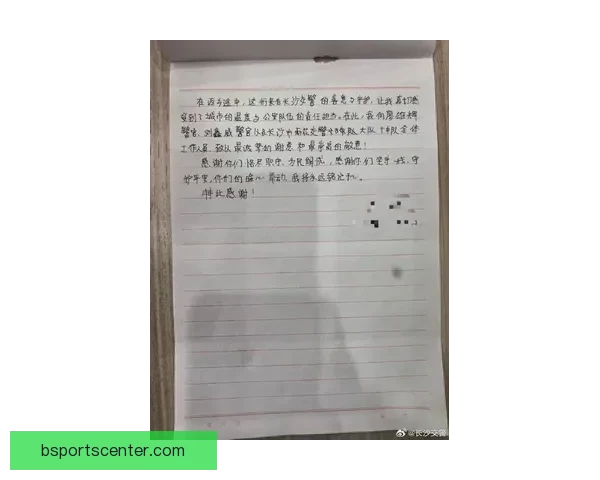 在返乡途中，这份来自长沙交警的善意与守护，让我真切感
受到了城市的温度与公安队伍的责任担当。在此，我向
警官、刘鑫威警官以及长沙市雨花交警大队
工作人员 致以最诚挚的谢意和最崇高的敬意！
感谢你们恪尽职守、为民解忧，感谢你们坚守一线、守
护平安，你们的暖心举动，我将永远铭记。
特此感谢！
@长沙交警
bsportscenter.com